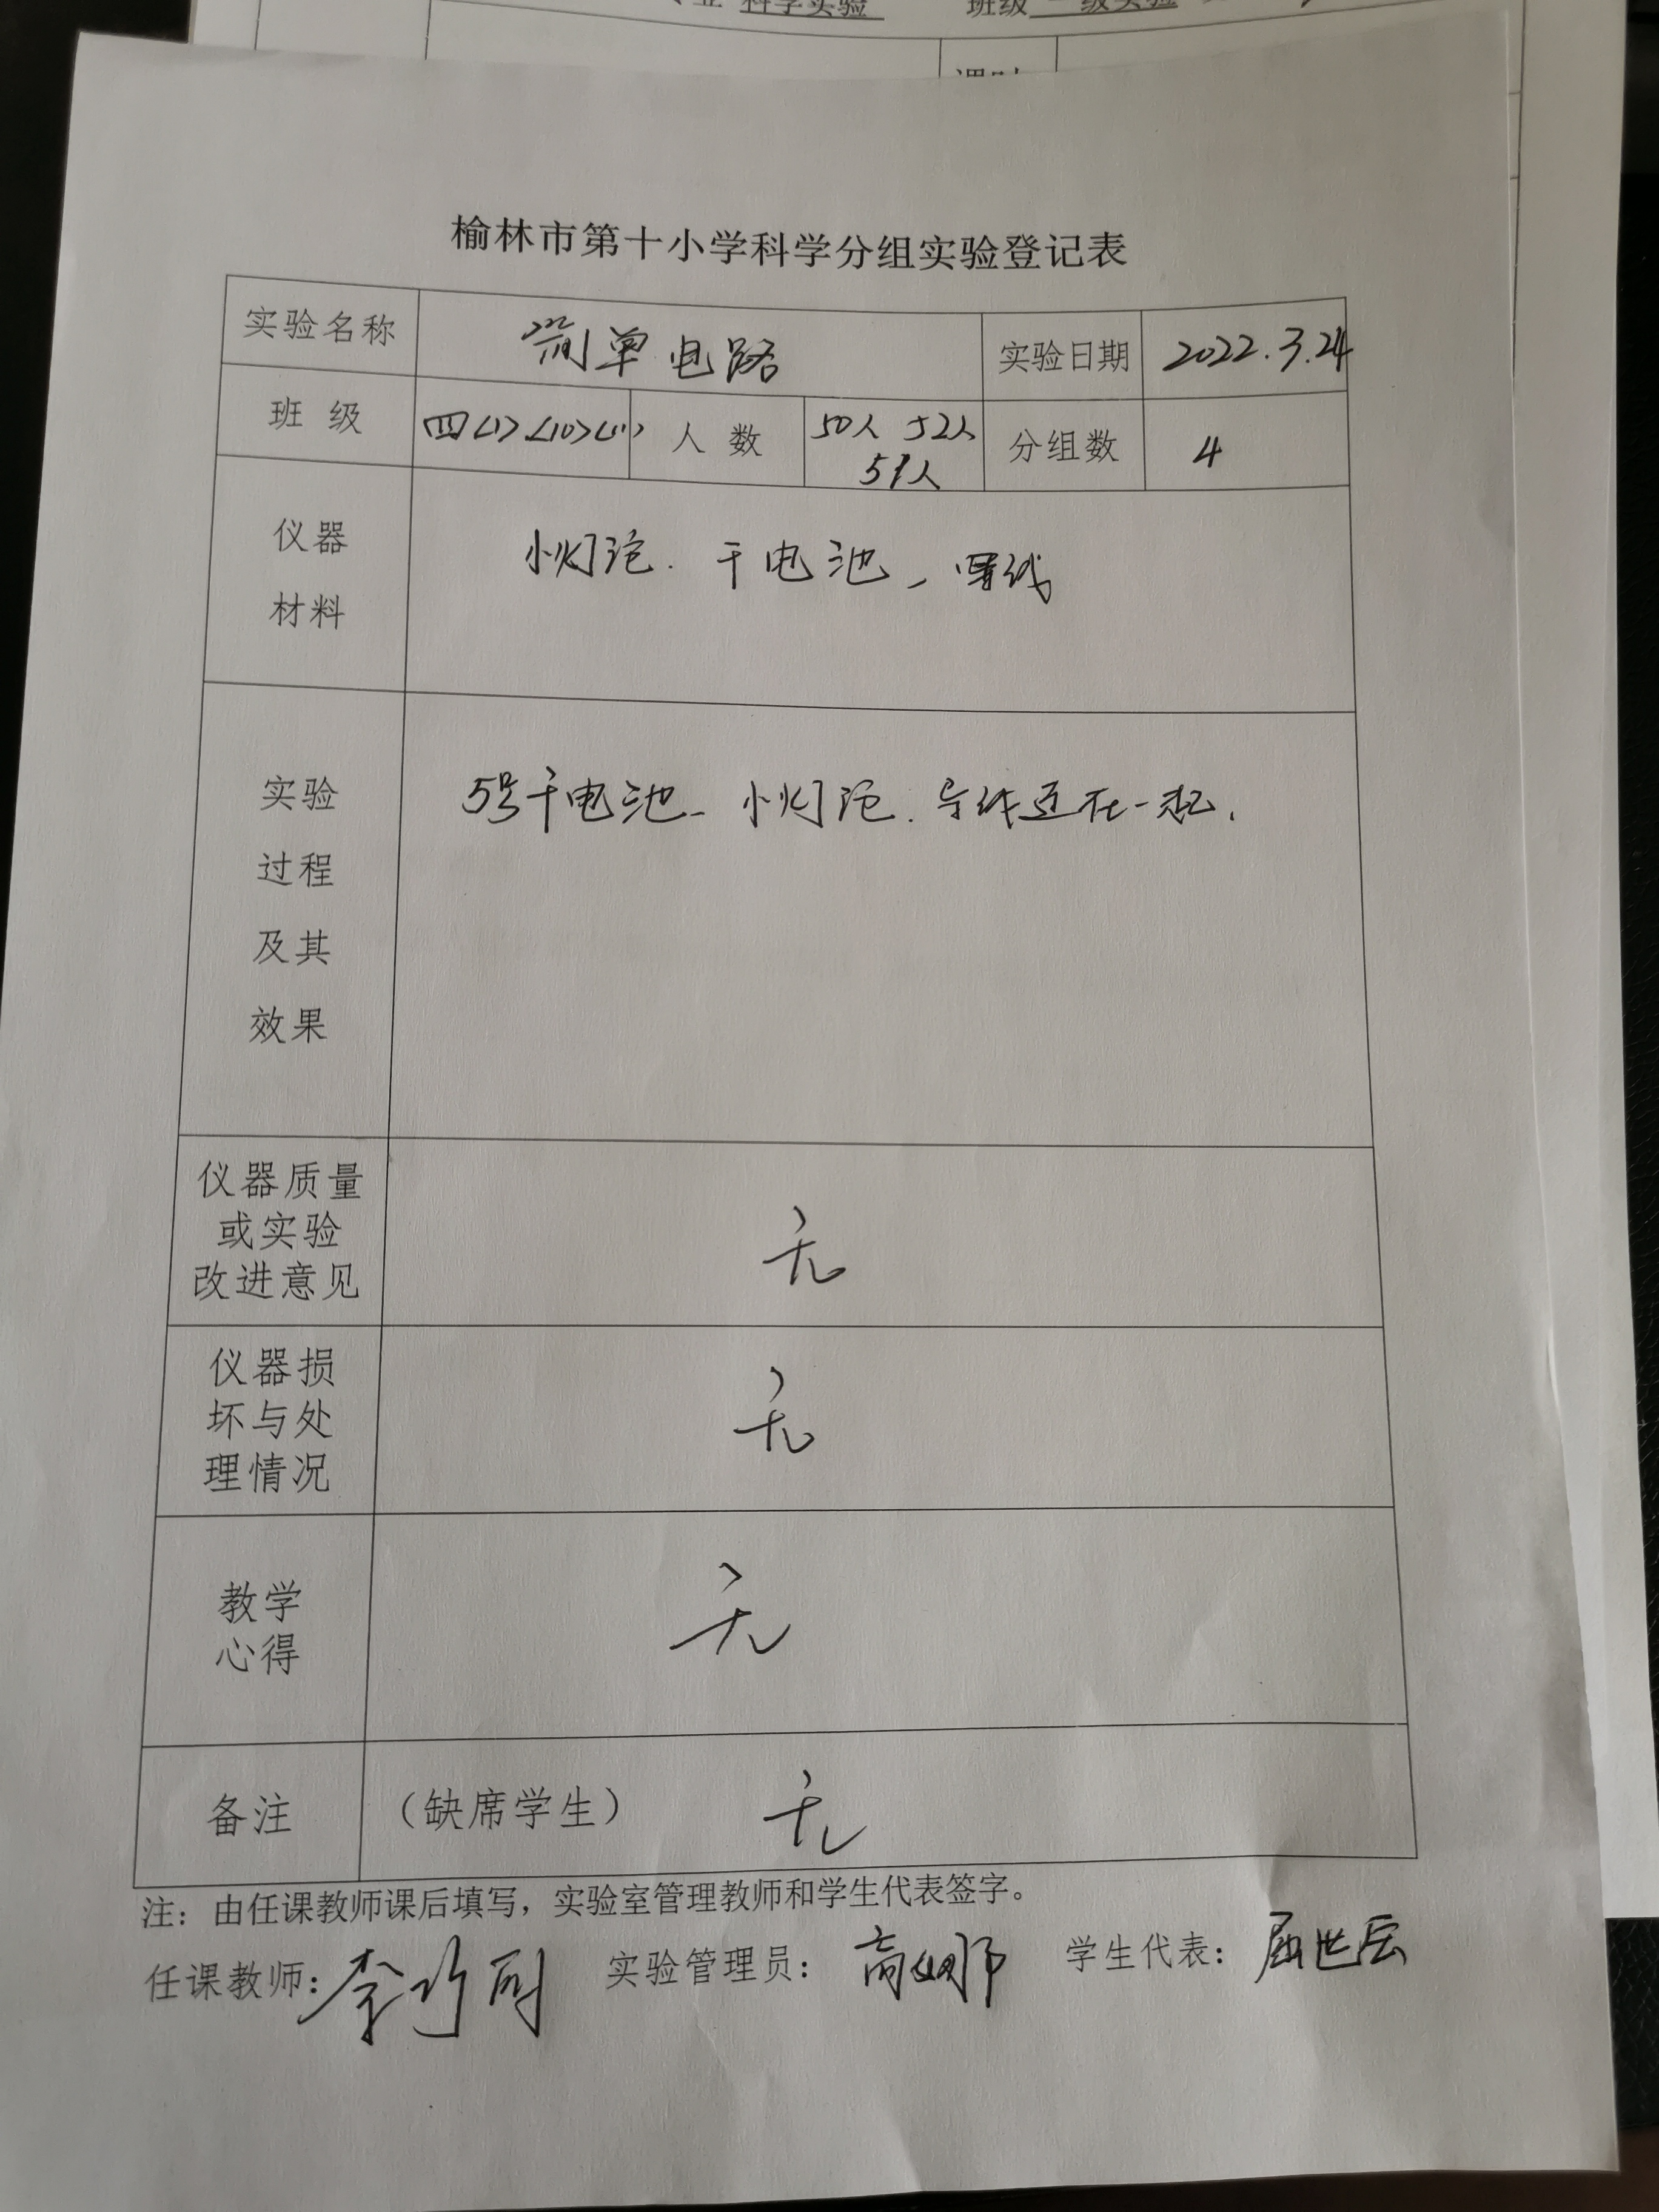 科学实验 班级 一级实验
课时
榆林市第十小学科学分组实验登记表
实验名称 简单电路 实验日期 2022.3.24
班 级 四<1><10><11> 人 数 50人 52人 51人 分组数 4
仪器 材料 小灯泡. 干电池、导线
实验 过程 及其 效果 5号干电池、小灯泡.导线连在一起.
仪器质量
或实验
改进意见 无
仪器损
坏与处
理情况 无
教学
心得 无
备注 （缺席学生） 无
注：由任课教师课后填写，实验室管理教师和学生代表签字。
任课教师：李 实验管理员：高娜 学生代表：屈世